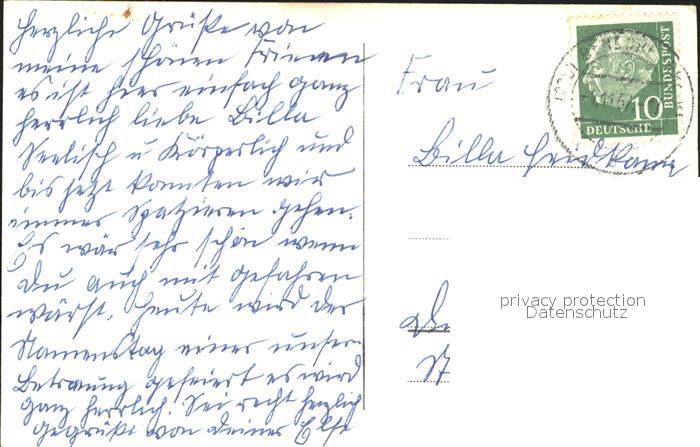 Herzliche Grüße von
meine schönen Ferienen
es ist hier einfach ganz
herrlich liebe Billa
Seelisch u Körperlich und
bis jetzt konnten wir
immer spatzieren gehen.
Es wär sehr schön wenn
Du auch mit gefahren
wärst. heute wird der
Namenstag eines unser
Betreuung gefeiert es wird
ganz herrlich. Sei recht herzlich
gegrüßt von deiner Else
Frau
Billa
10
DEUTSCHE
BUNDESPOST
privacy protection
Datenschutz